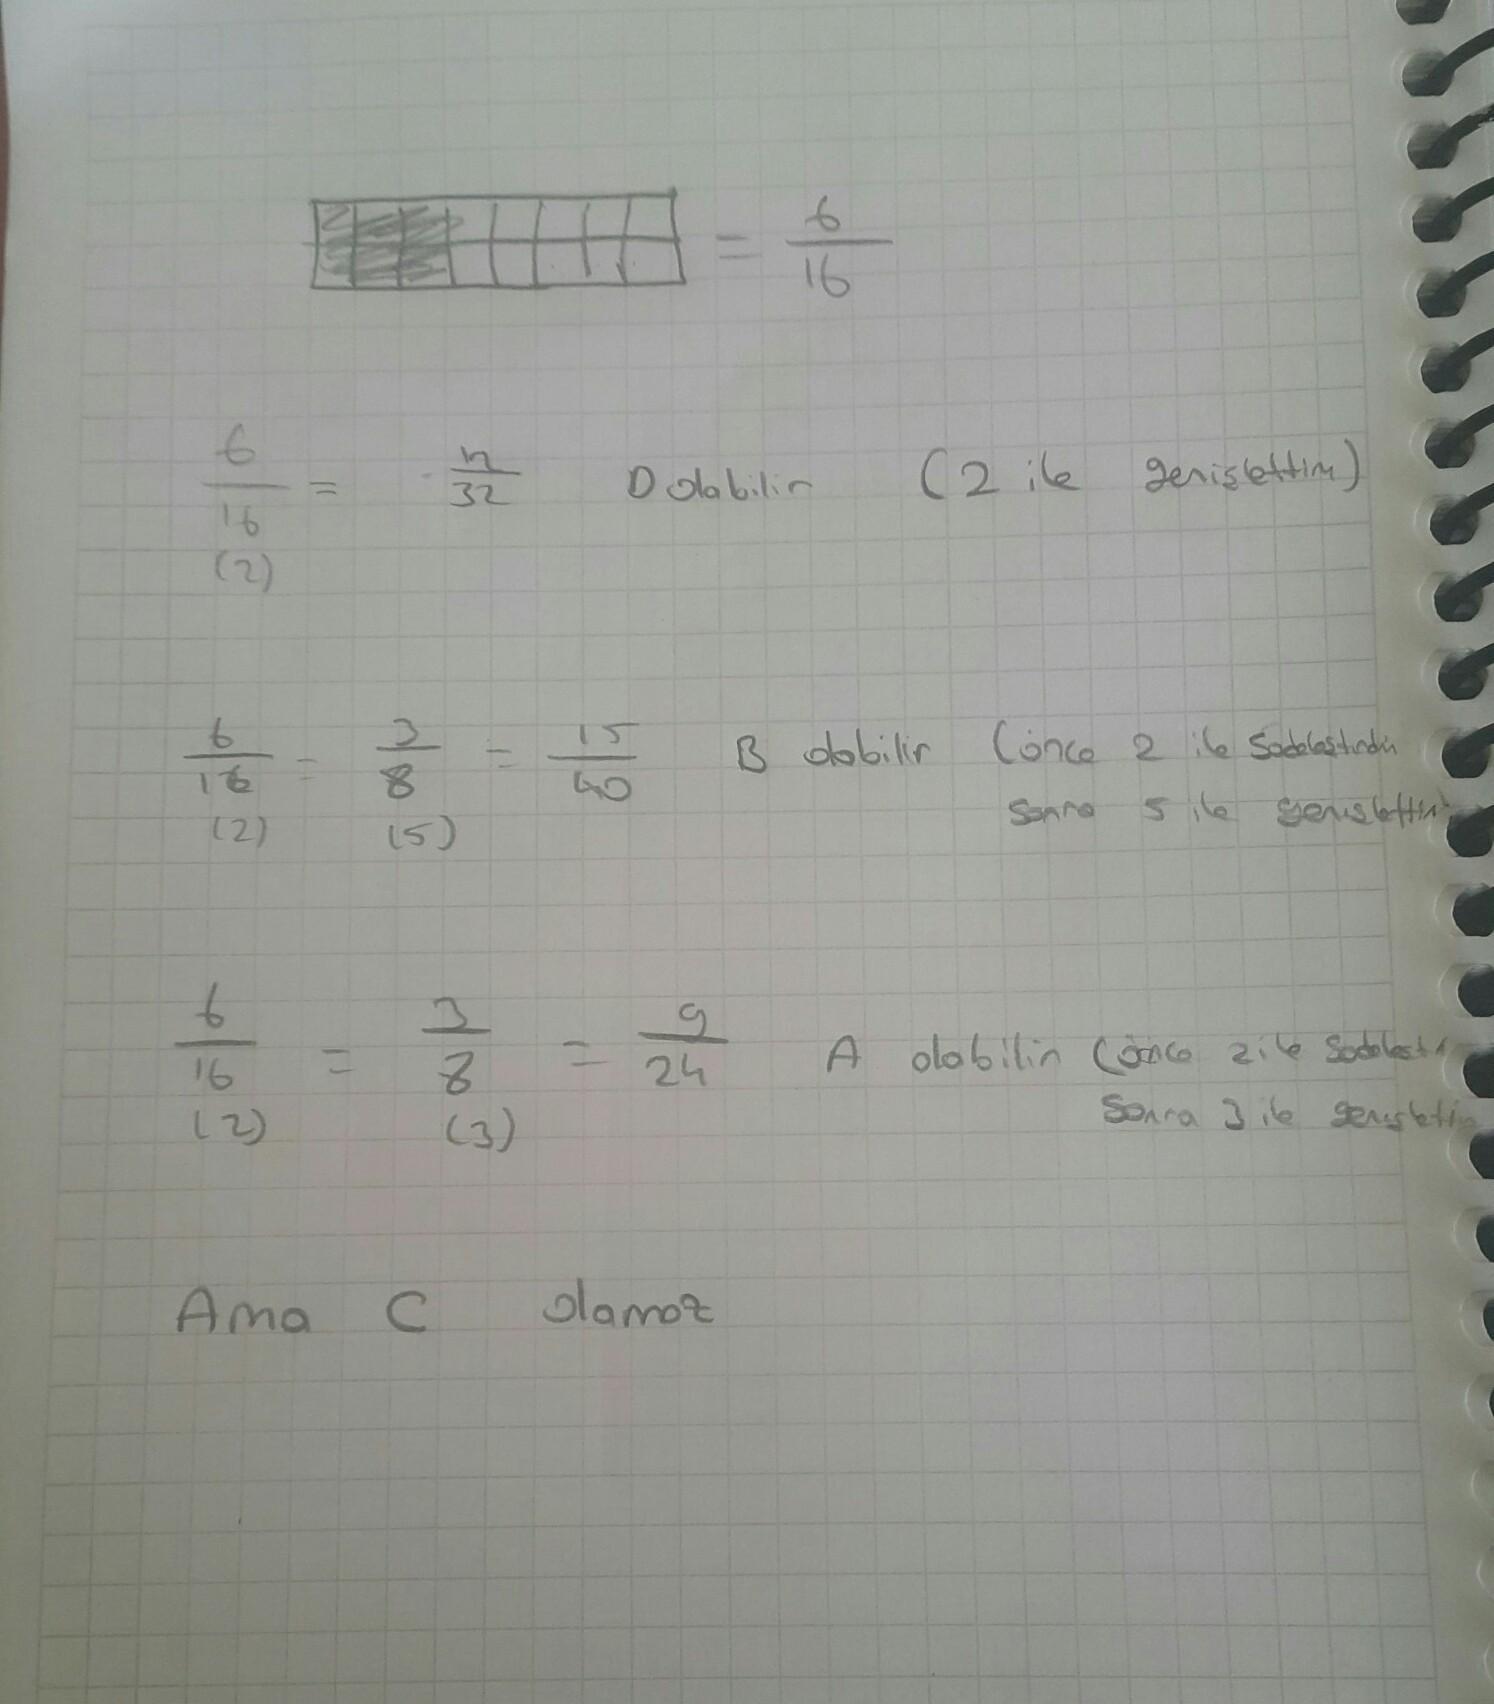 = 6/16
6/16 = 12/32 D olabilir (2 ile genişlettim)
(2)
6/16 = 3/8 = 15/40 B olabilir (önce 2 ile Sadeleştirdim
(2) (5) Sonra 5 ile genişlettim
6/16 = 3/8 = 9/24 A olabilir (önce 2 ile Sadeleşti
(2) (3) Sonra 3 ile genişletti
Ama C olamaz